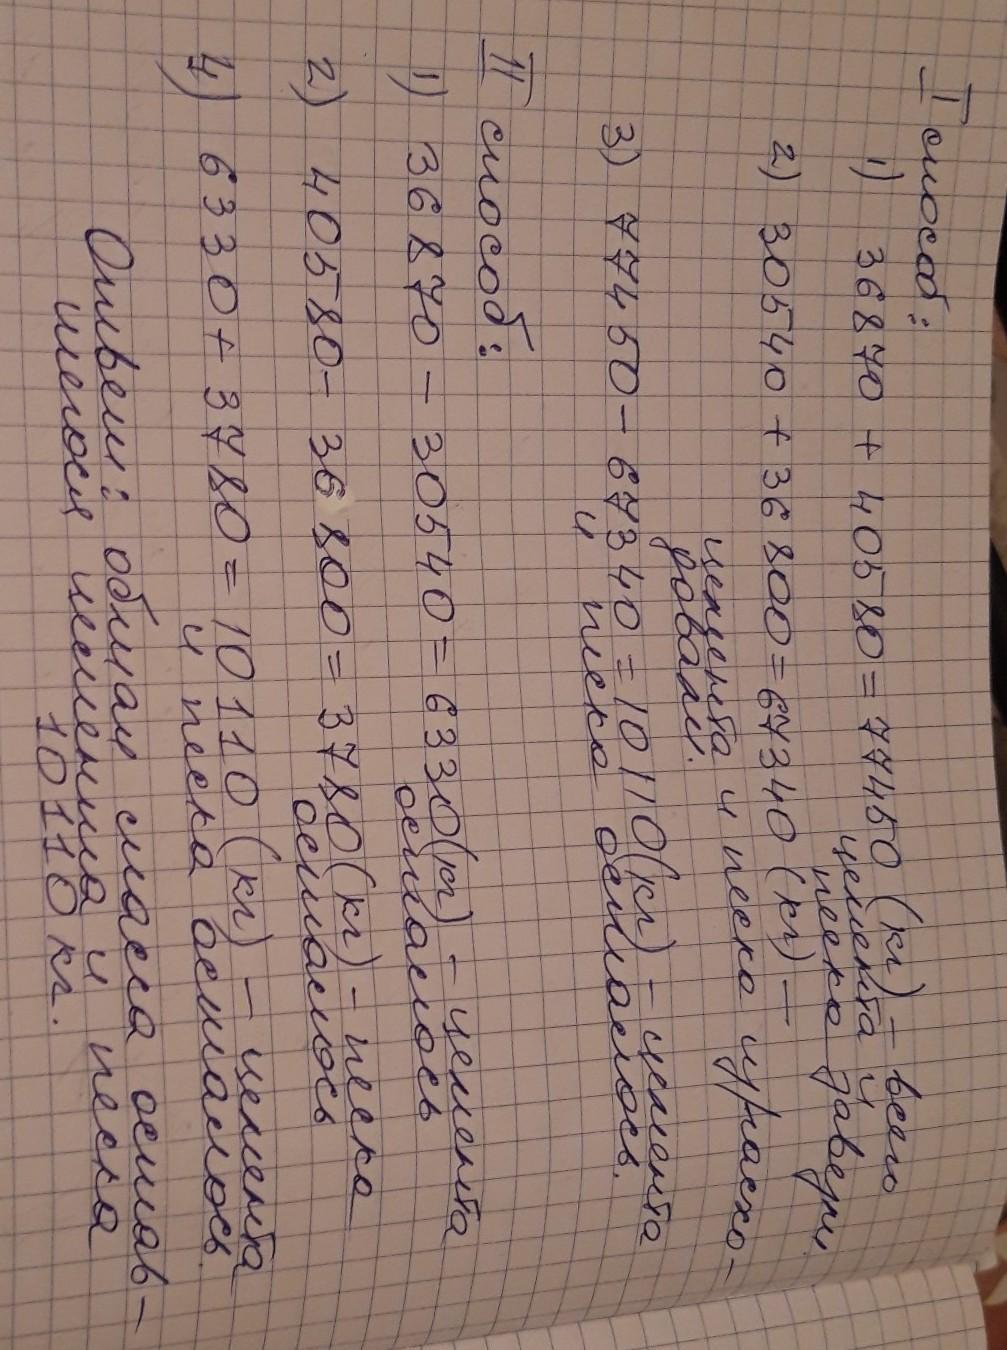 I способ:
1) 36870 + 40580 = 77450 (кг) - всего
цемента и
песка завезли
2) 30540 + 36800 = 67340 (кг) -
цемцента и песка израсхо-
ровали.
3) 77450 - 67340 = 10110 (кг) - цемента
и песка осталось.
II способ:
1) 36870 - 30540 = 6330 (кг) - цемента
осталось
2) 40580 - 36800 = 3780 (кг) - песка
осталось
4) 6330 + 3780 = 10110 (кг) - цемента
и песка осталось
Ответ: общая масса остав-
шегося цемента и песка
10110 кг.